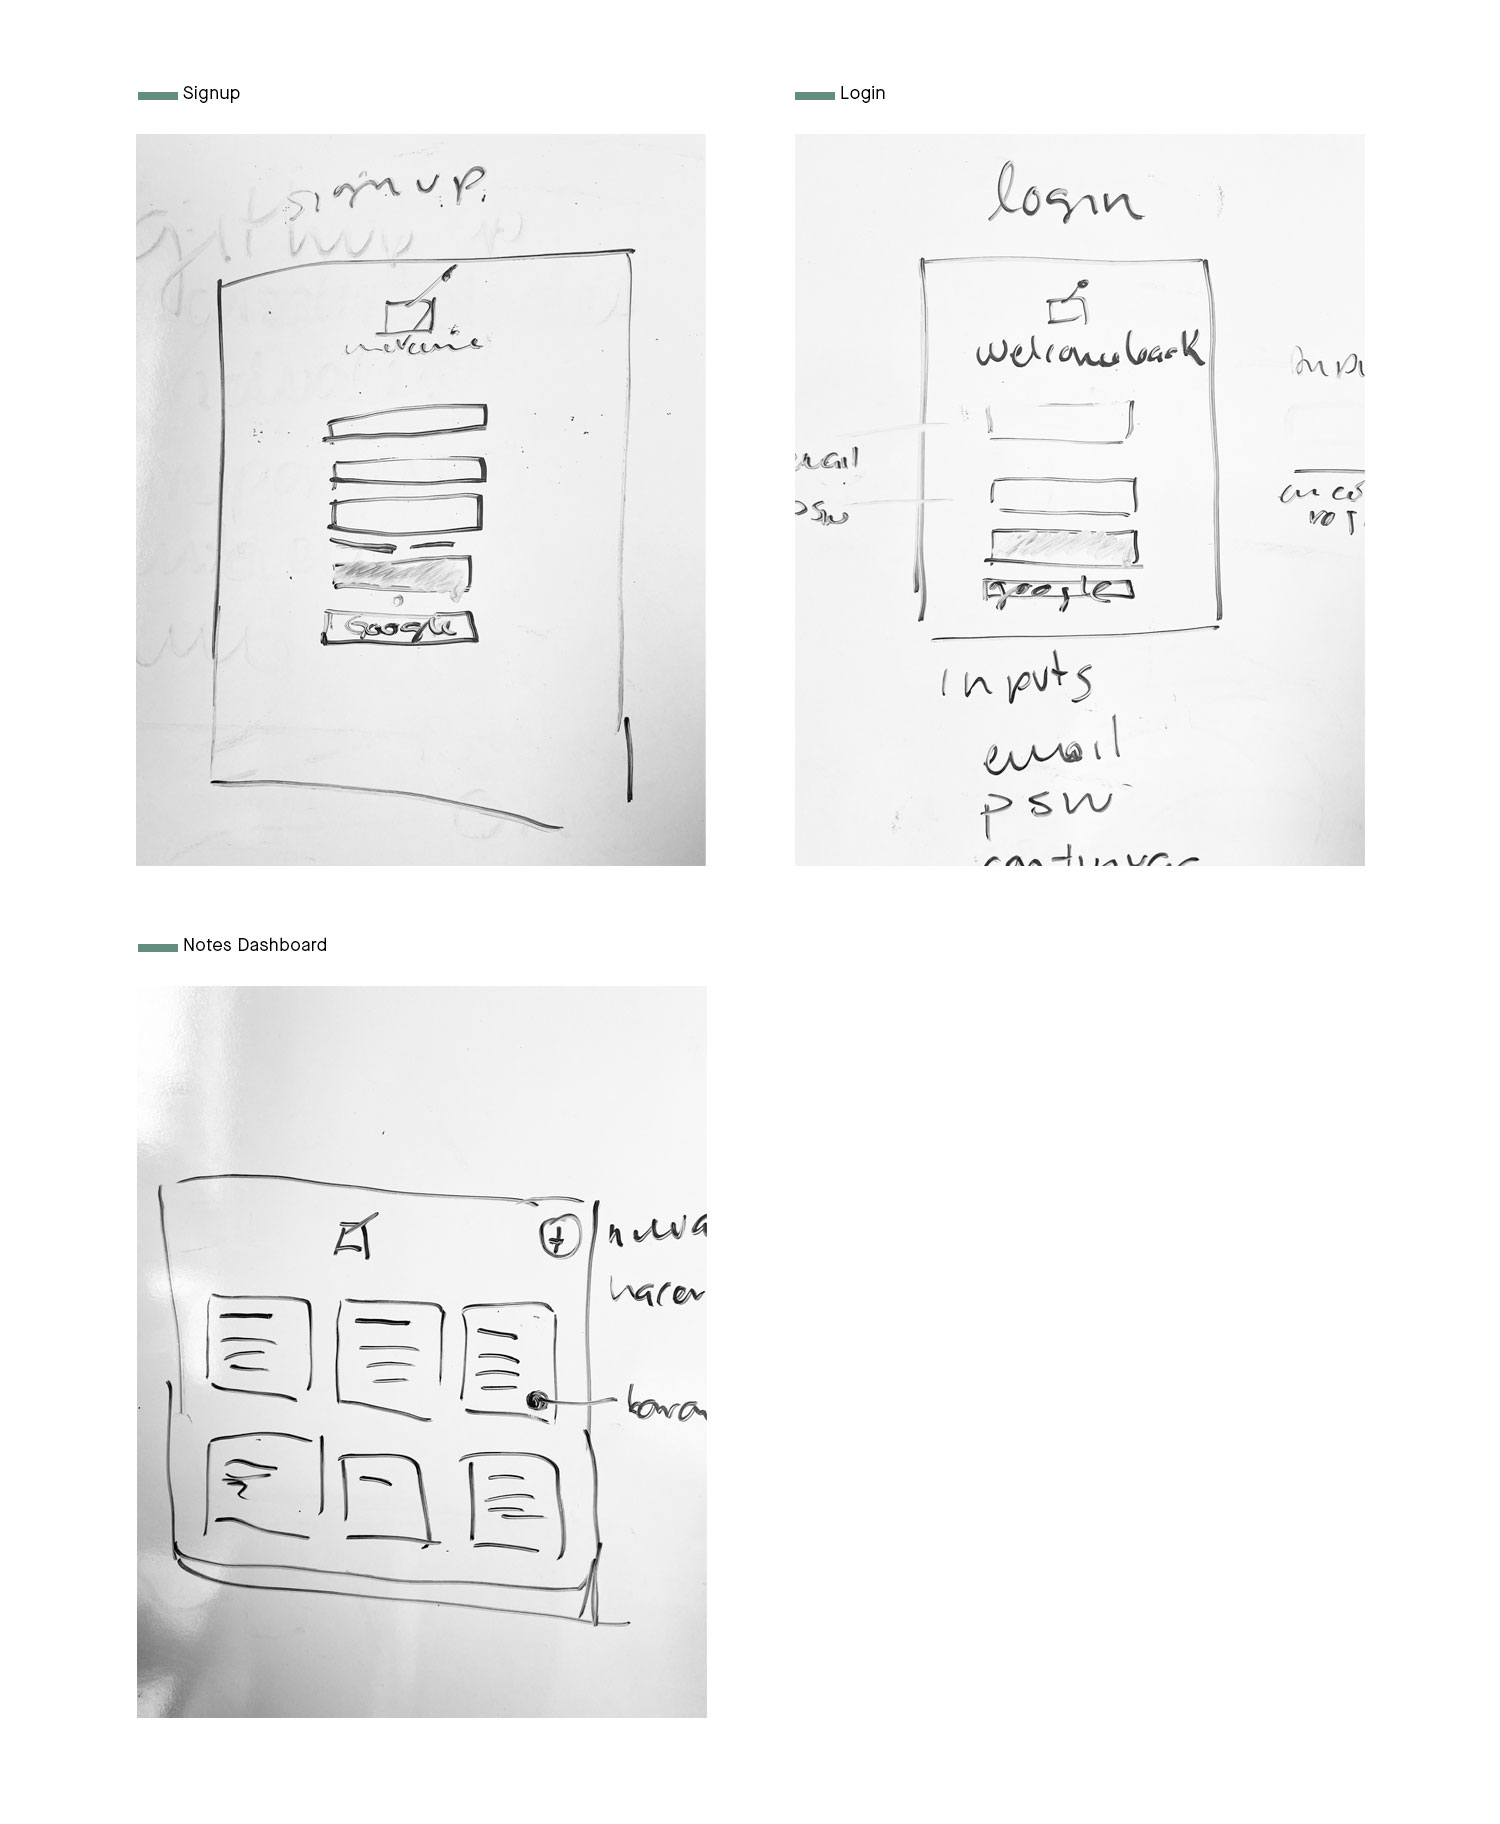 Signup
sign up.
welcome
Google
Login
login
welcome back
email
psw
google
inputs
email
psw
continuar
Notes Dashboard
+
nueva
hacer